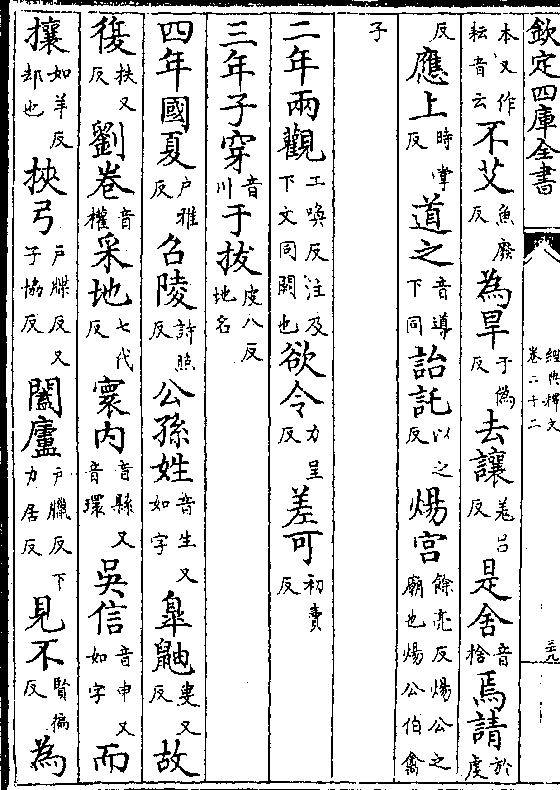 欽定四庫全書 經典釋文 卷二十二 三九
本又作耘音云不艾魚廢反為旱于偽反去讓羌呂反是舍音捨焉請於虔
反應上時掌反道之音導下同詒託以之反煬宮餘亮反煬公之廟也煬公伯禽
子
二年兩觀工喚反注及下文同闕也欲令力呈反差可初賣反
三年子穿音川于拔皮八反地名
四年國夏户雅反召陵詩照反公孫姓音生又如字皐鼬又反故
復扶又反劉卷音權采地七代反寰内音縣又音環吳信音申又如字而
攘如羊反却也挾弓户牒反又子協反闔廬户臘反下力居反見不賢徧反為